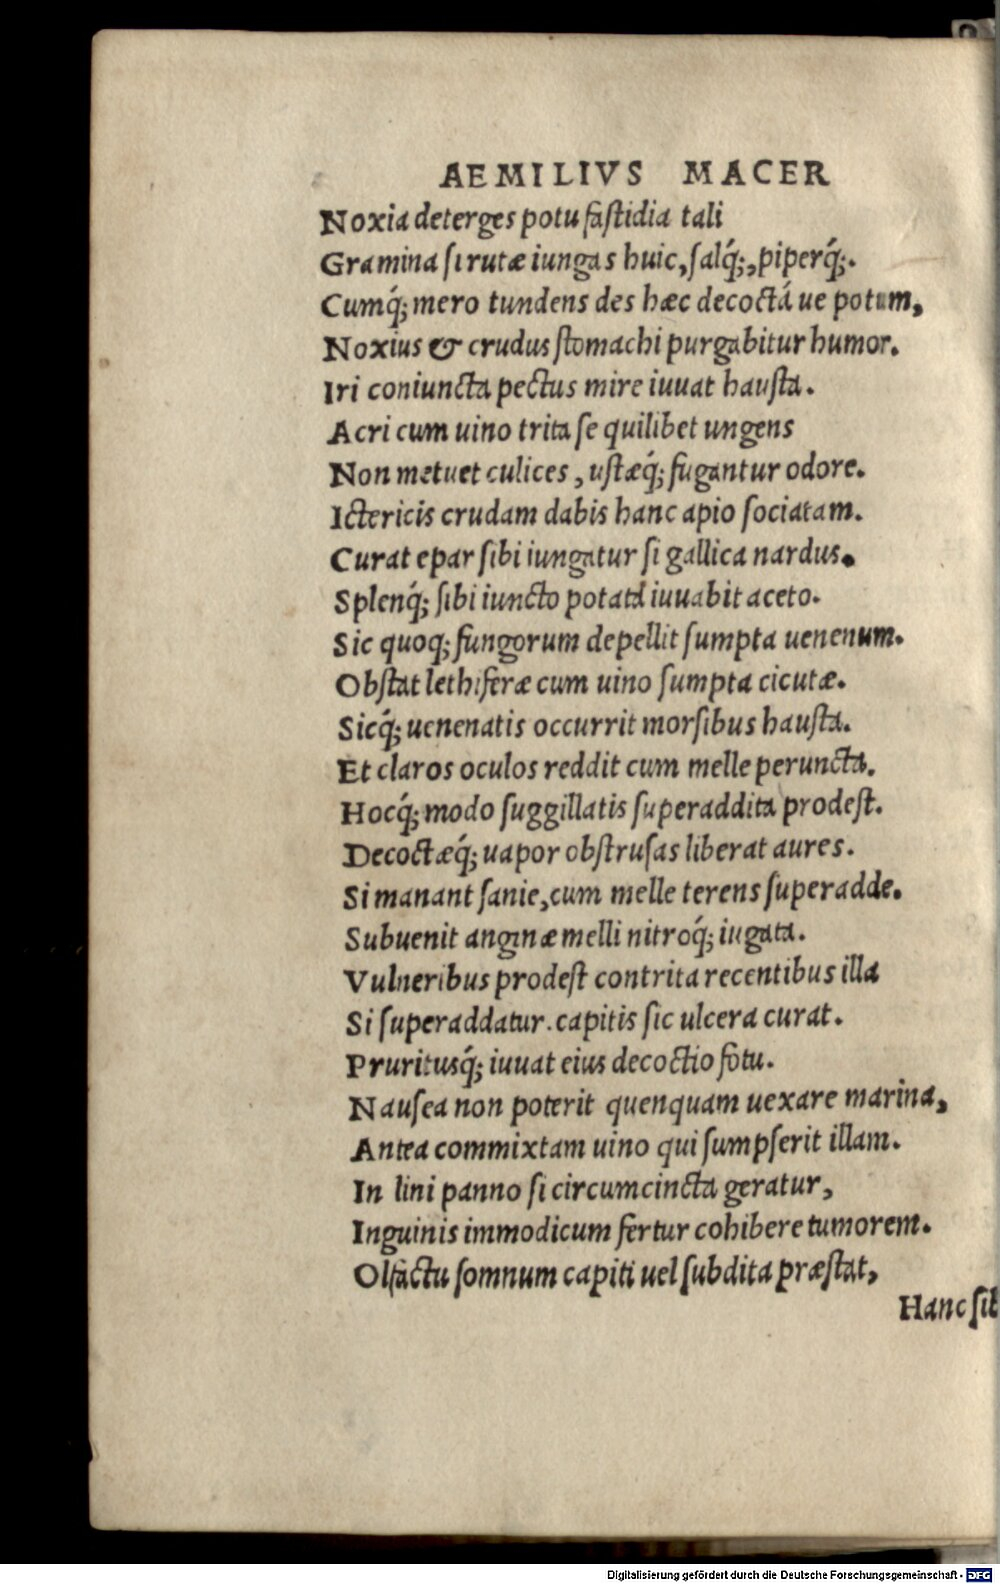 AEMILIVS MACER
Noxia deterges potu fastidia tali
Gramina si rutæ iungas huic, salq́;, piperq́;.
Cumq́; mero tundens des hæc decoctá ue potum,
Noxius & crudus stomachi purgabitur humor.
Iri coniuncta pectus mire iuuat hausta.
Acri cum uino trita se quilibet ungens
Non metuet culices, ustæq́; fugantur odore.
Ictericis crudam dabis hanc apio sociatam.
Curat epar sibi iungatur si gallica nardus.
Splenq́; sibi iuncto potata iuuabit aceto.
Sic quoq; fungorum depellit sumpta uenenum.
Obstat lethiferæ cum uino sumpta cicutæ.
Sicq́; uenenatis occurrit morsibus hausta.
Et claros oculos reddit cum melle peruncta.
Hocq́; modo suggillatis superaddita prodest.
Decoctæq́; uapor obstrusas liberat aures.
Si manant sanie, cum melle terens superadde.
Subuenit anginæ melli nitroq́; iugata.
Vulneribus prodest contrita recentibus illa
Si superaddatur. capitis sic ulcera curat.
Pruritusq́; iuuat eius decoctio fotu.
Nausea non poterit quenquam uexare marina,
Antea commixtam uino qui sumpserit illam.
In lini panno si circumcincta geratur,
Inguinis immodicum fertur cohibere tumorem.
Olfactu somnum capiti uel subdita præstat,
Hanc sib
Digitalisierung gefördert durch die Deutsche Forschungsgemeinschaft - DFG